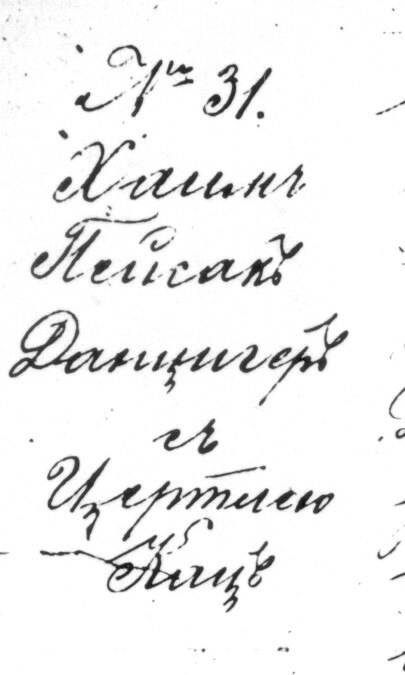 № 31.
Хаимъ
Пейсакъ
Данцигеръ
съ
Цертлею
Кацъ